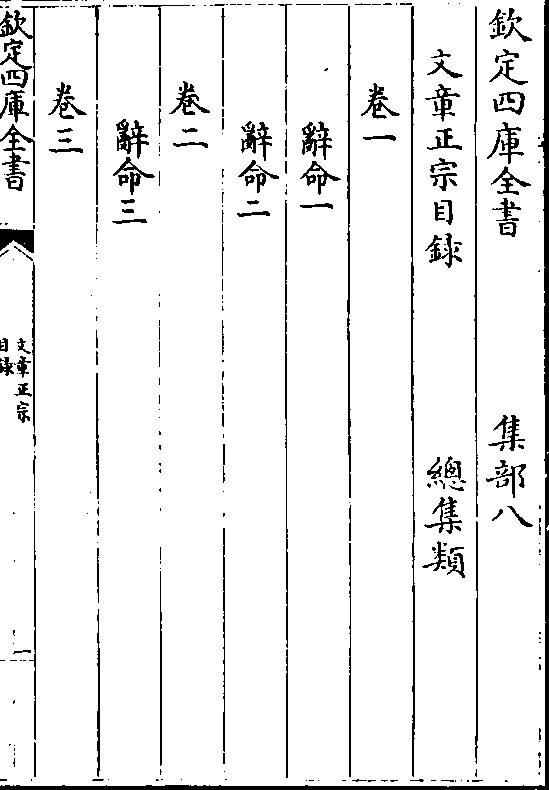 欽定四庫全書 集部八
文章正宗目錄 總集類
卷一
辭命一
辭命二
卷二
辭命三
卷三
欽定四庫全書
文章正宗
目錄
一